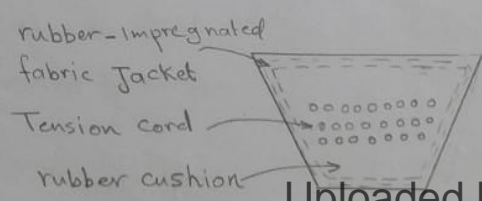 rubber-impregnated
fabric Jacket
Tension cord
rubber cushion
Uploaded